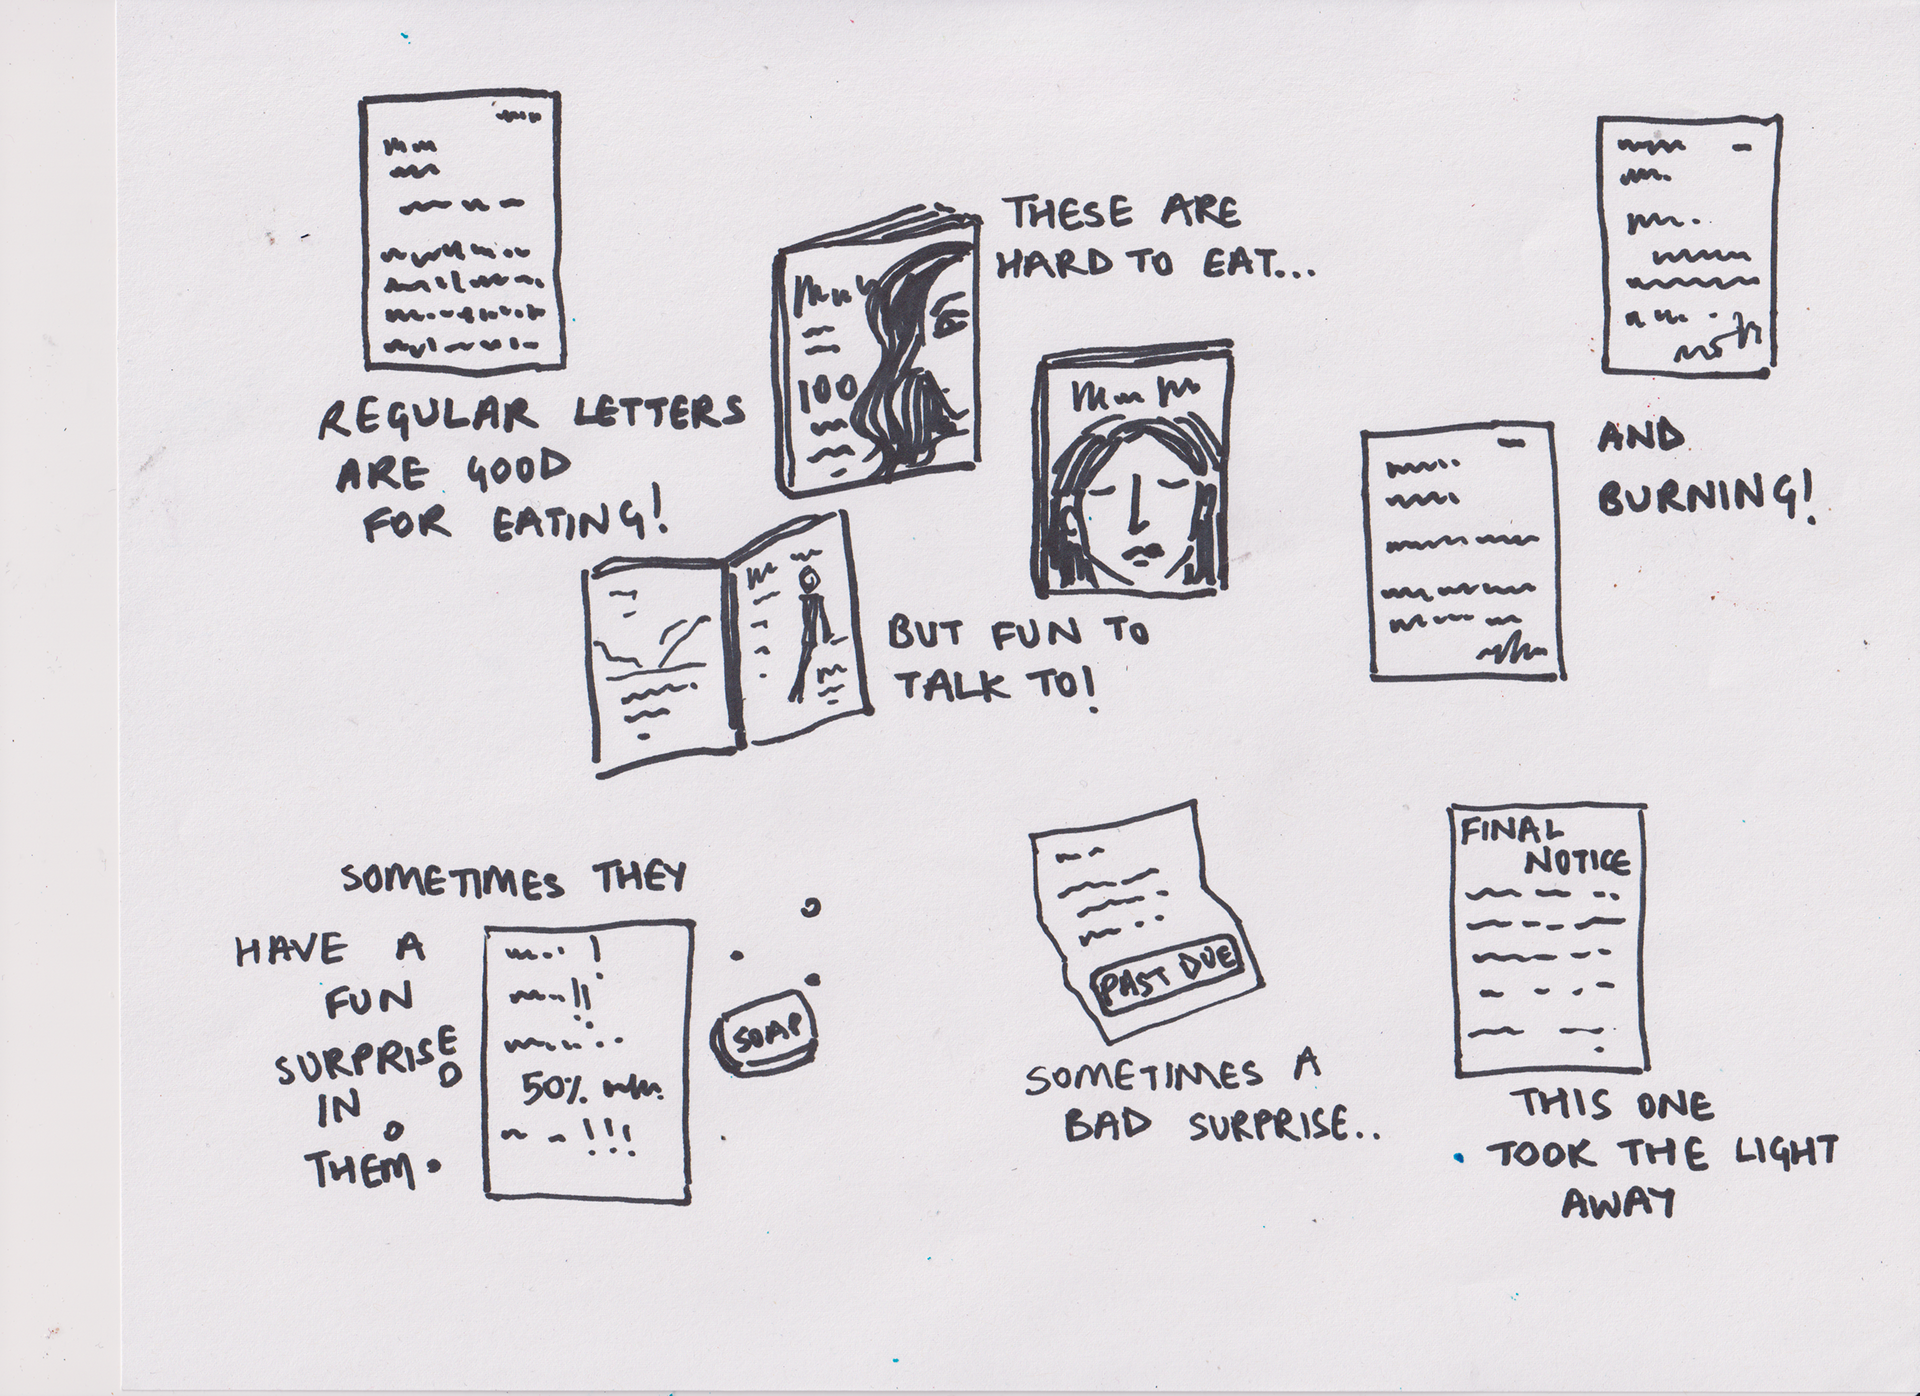 REGULAR LETTERS
ARE GOOD
FOR EATING!
THESE ARE
HARD TO EAT...
100
BUT FUN TO
TALK TO!
AND
BURNING!
SOMETIMES THEY
HAVE A
FUN
SURPRISE
IN
THEM.
50%
!!!
SOAP
PAST DUE
SOMETIMES A
BAD SURPRISE..
FINAL
NOTICE
THIS ONE
TOOK THE LIGHT
AWAY